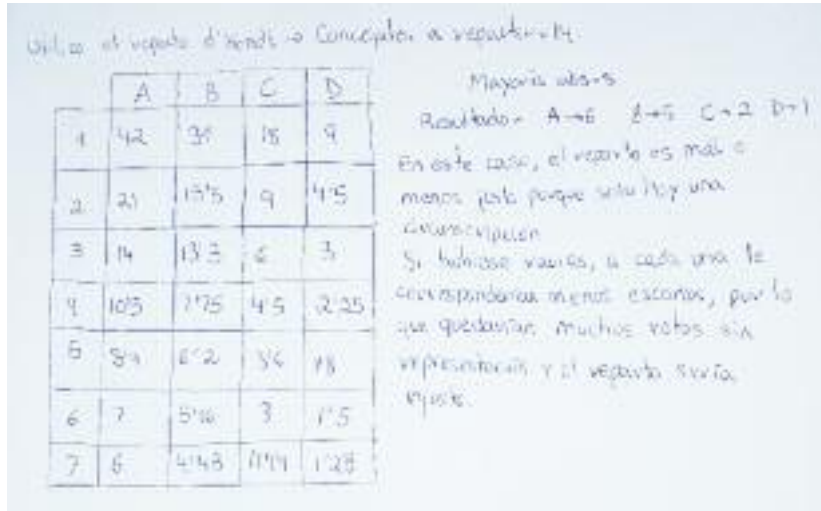 Utilizo el reparto d'Hondt → Concejales a repartir = 14
A B C D
1 42 31 18 9
2 21 15'5 9 4'5
3 14 13'3 6 3
4 10'5 7'75 4'5 2'25
5 8'4 6'2 3'6 1'8
6 7 5'16 3 1'5
7 6 4'43 1'28
Mayoría abs = 8
Resultado = A→6 B→5 C→2 D→1
En este caso, el reparto es más o
menos justo porque solo hay una
circunscripción
Si hubiese varias, a cada una le
corresponderían menos escaños, por lo
que quedarían muchos votos sin
representación y el reparto sería
injusto.